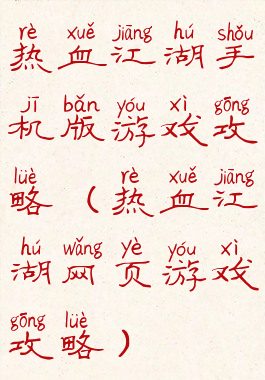 rè xuě jiāng hú shǒu
热血江湖手
jī bǎn yóu xì gōng
机版游戏攻
lüè rè xuě jiāng
略（热血江
hú wǎng yè yóu xì
湖网页游戏
gōng lüè
攻略）